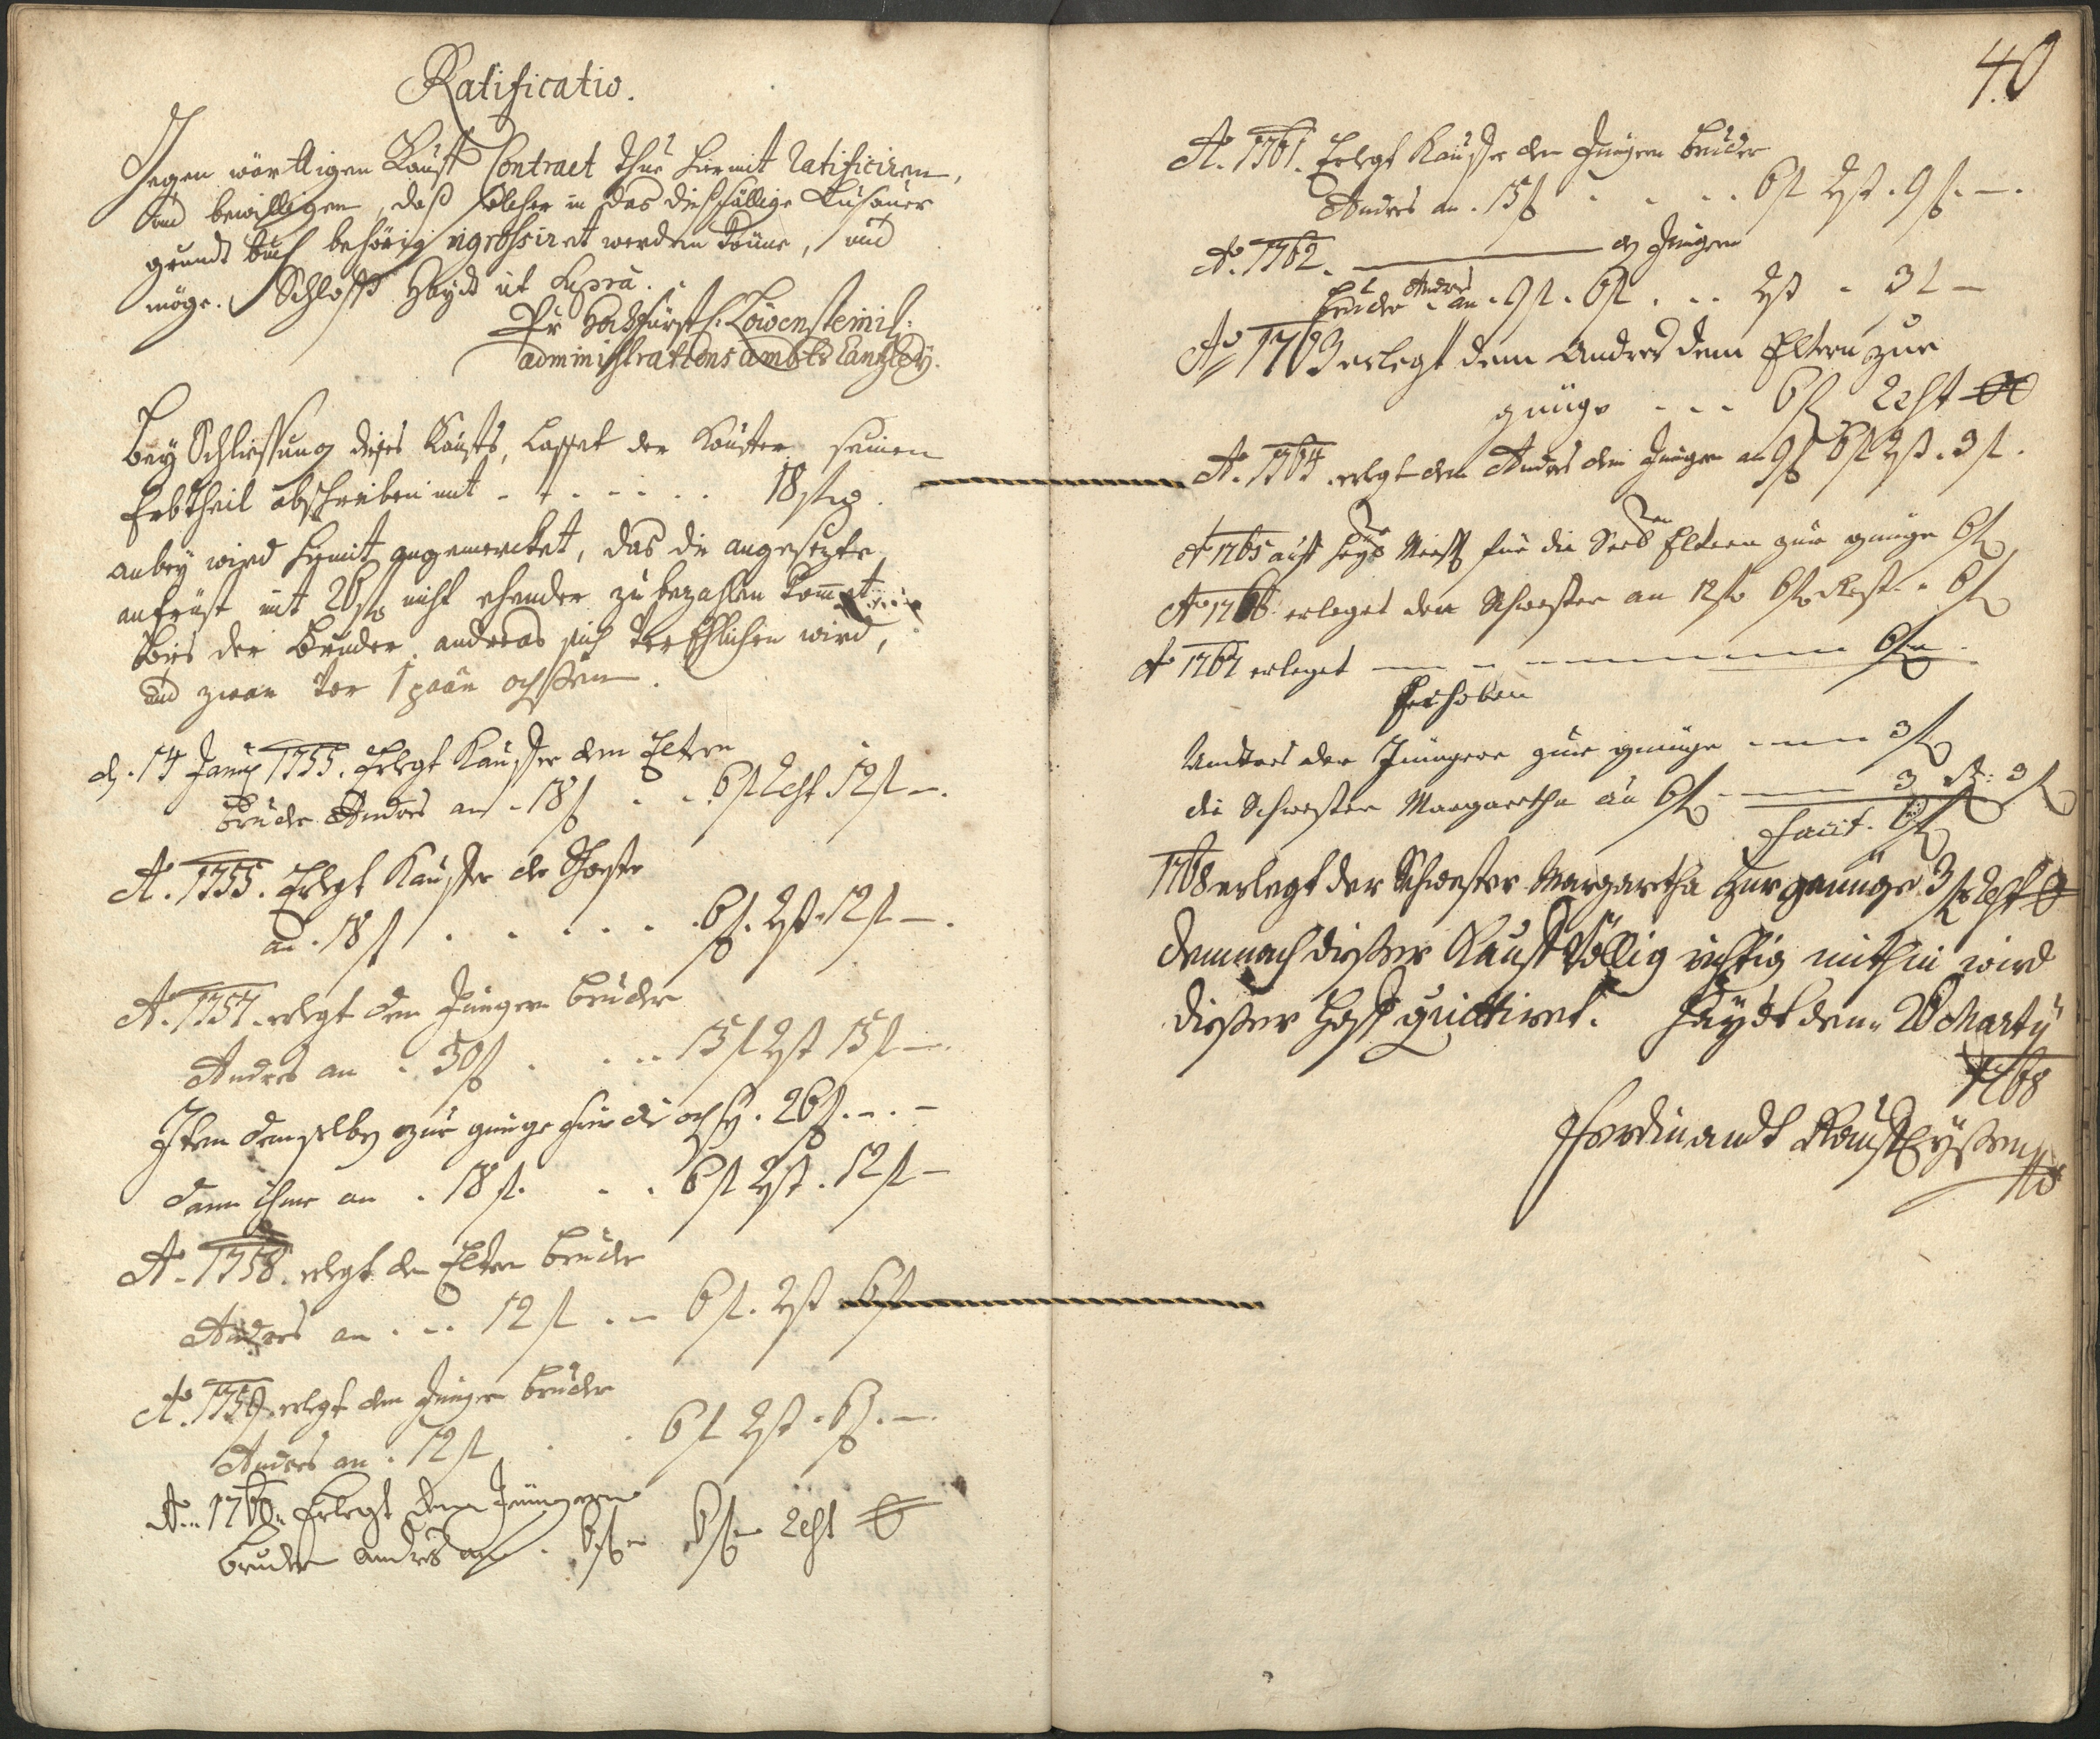 Ratificatio.
Gegen wärttigen Kauff Contract thue hiermit ratificiren,
und bewilligen, daß solcher in das diesfällige Lusauer
grundt buch behörig ingrossiret werden könne, und
möge. Schloß Hayd ut supra.
Pr Hochfürstl: Löwensteinil:
administrations ambts Cantzley.
Bey Schliessung dieses Kauffs, lasset der Kauffer seinen
Erbtheil abschreiben mit - - - - - . . 18 fl
anbey wird hiermit angemercket, das die angesetzte
anfrist mit 26 fl nicht ehender zu bezahlen kommet
bies der Bruder andreas sich verEhlichen wird,
und zwar vor 1 paar ochssen.
d. 14 Jan 1755. Erlegt Kauffer dem Eltern
Bruder Andres an . 18 f . . 6 f Rest 12 f —.
A. 1755. Erlegt Kauffer der Schwester
an . 18 f . . . . . . 6 f. Rest . 12 f —.
A. 1757. erlegt dem Jüngern bruder
Andres an . 30 f . . . . 15 f Rest 15 f —.
Item demselben zur gnüge für die ochsen . 26 f. — . —
dann ihme an . 18 f. . . 6 f Rest . 12 f —
A. 1758. erlegt den Eltern bruder
Andres an . . . 12 f . — 6 f. Rest 6 f
A. 1759. erlegt dem Jünger bruder
Andres an . 12 f . . 6 f Rest . 6 f. —.
A. 1760. Erlegt dem Jüngern
bruder andres an . 6 f 6 f Rest 0
40
A. 1761. Erlegt Kauffer dem Jüngern bruder
Andres an . 15 f . . . . 6 f Rest . 9 f. —.
A. 1762. ——— dem Jüngern
bruder Andres an . 9 f . 6 f . . . Rest . 3 f —
Ao 1763 erlegt dem Andres dem Eltern zur
gnüge - - - 6 f Rest 0
A. 1764. erlegt dem Andres dem Jünger an 9 f 6 f Rest . 3 f.
A 1765 auf für die Eltern zur gnüge 6 f
Ao 1766 erleget der Schwester an 12 f 6 f Rest . 6 f
Ao 1767 erleget — — — — — 6 f
Erhoben
Andres der Jüngere zur gnüge — — 3 f
die Schwester Margaretha an 6 f — — 3 R: 3 f
facit. 6 f
1768 erlegt der Schwester Margaretha zur gnüge 3 f Rest 0
demnach dießer Kauff völlig richtig mithin wird
dießer Hoff quittiret. Haydt den 20 Marty
1768
Ferdinandt